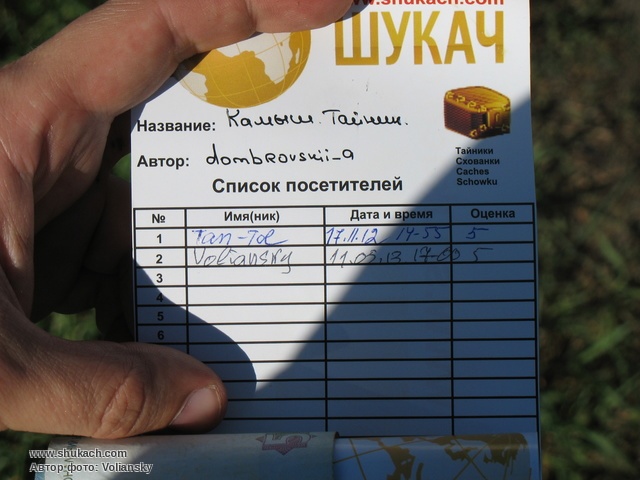 www.shukach.com
ШУКАЧ
Название: Камыши. Тайник.
Автор: dombrovskii_a
Тайники
Схованки
Caches
Schowku
Список посетителей
№ Имя(ник) Дата и время Оценка
1 Tan-Tol 17.11.12 14-55 5
2 Voliansky 11.03.13 17-00 5
3
4
5
6
www.shukach.com
Автор фото: Voliansky